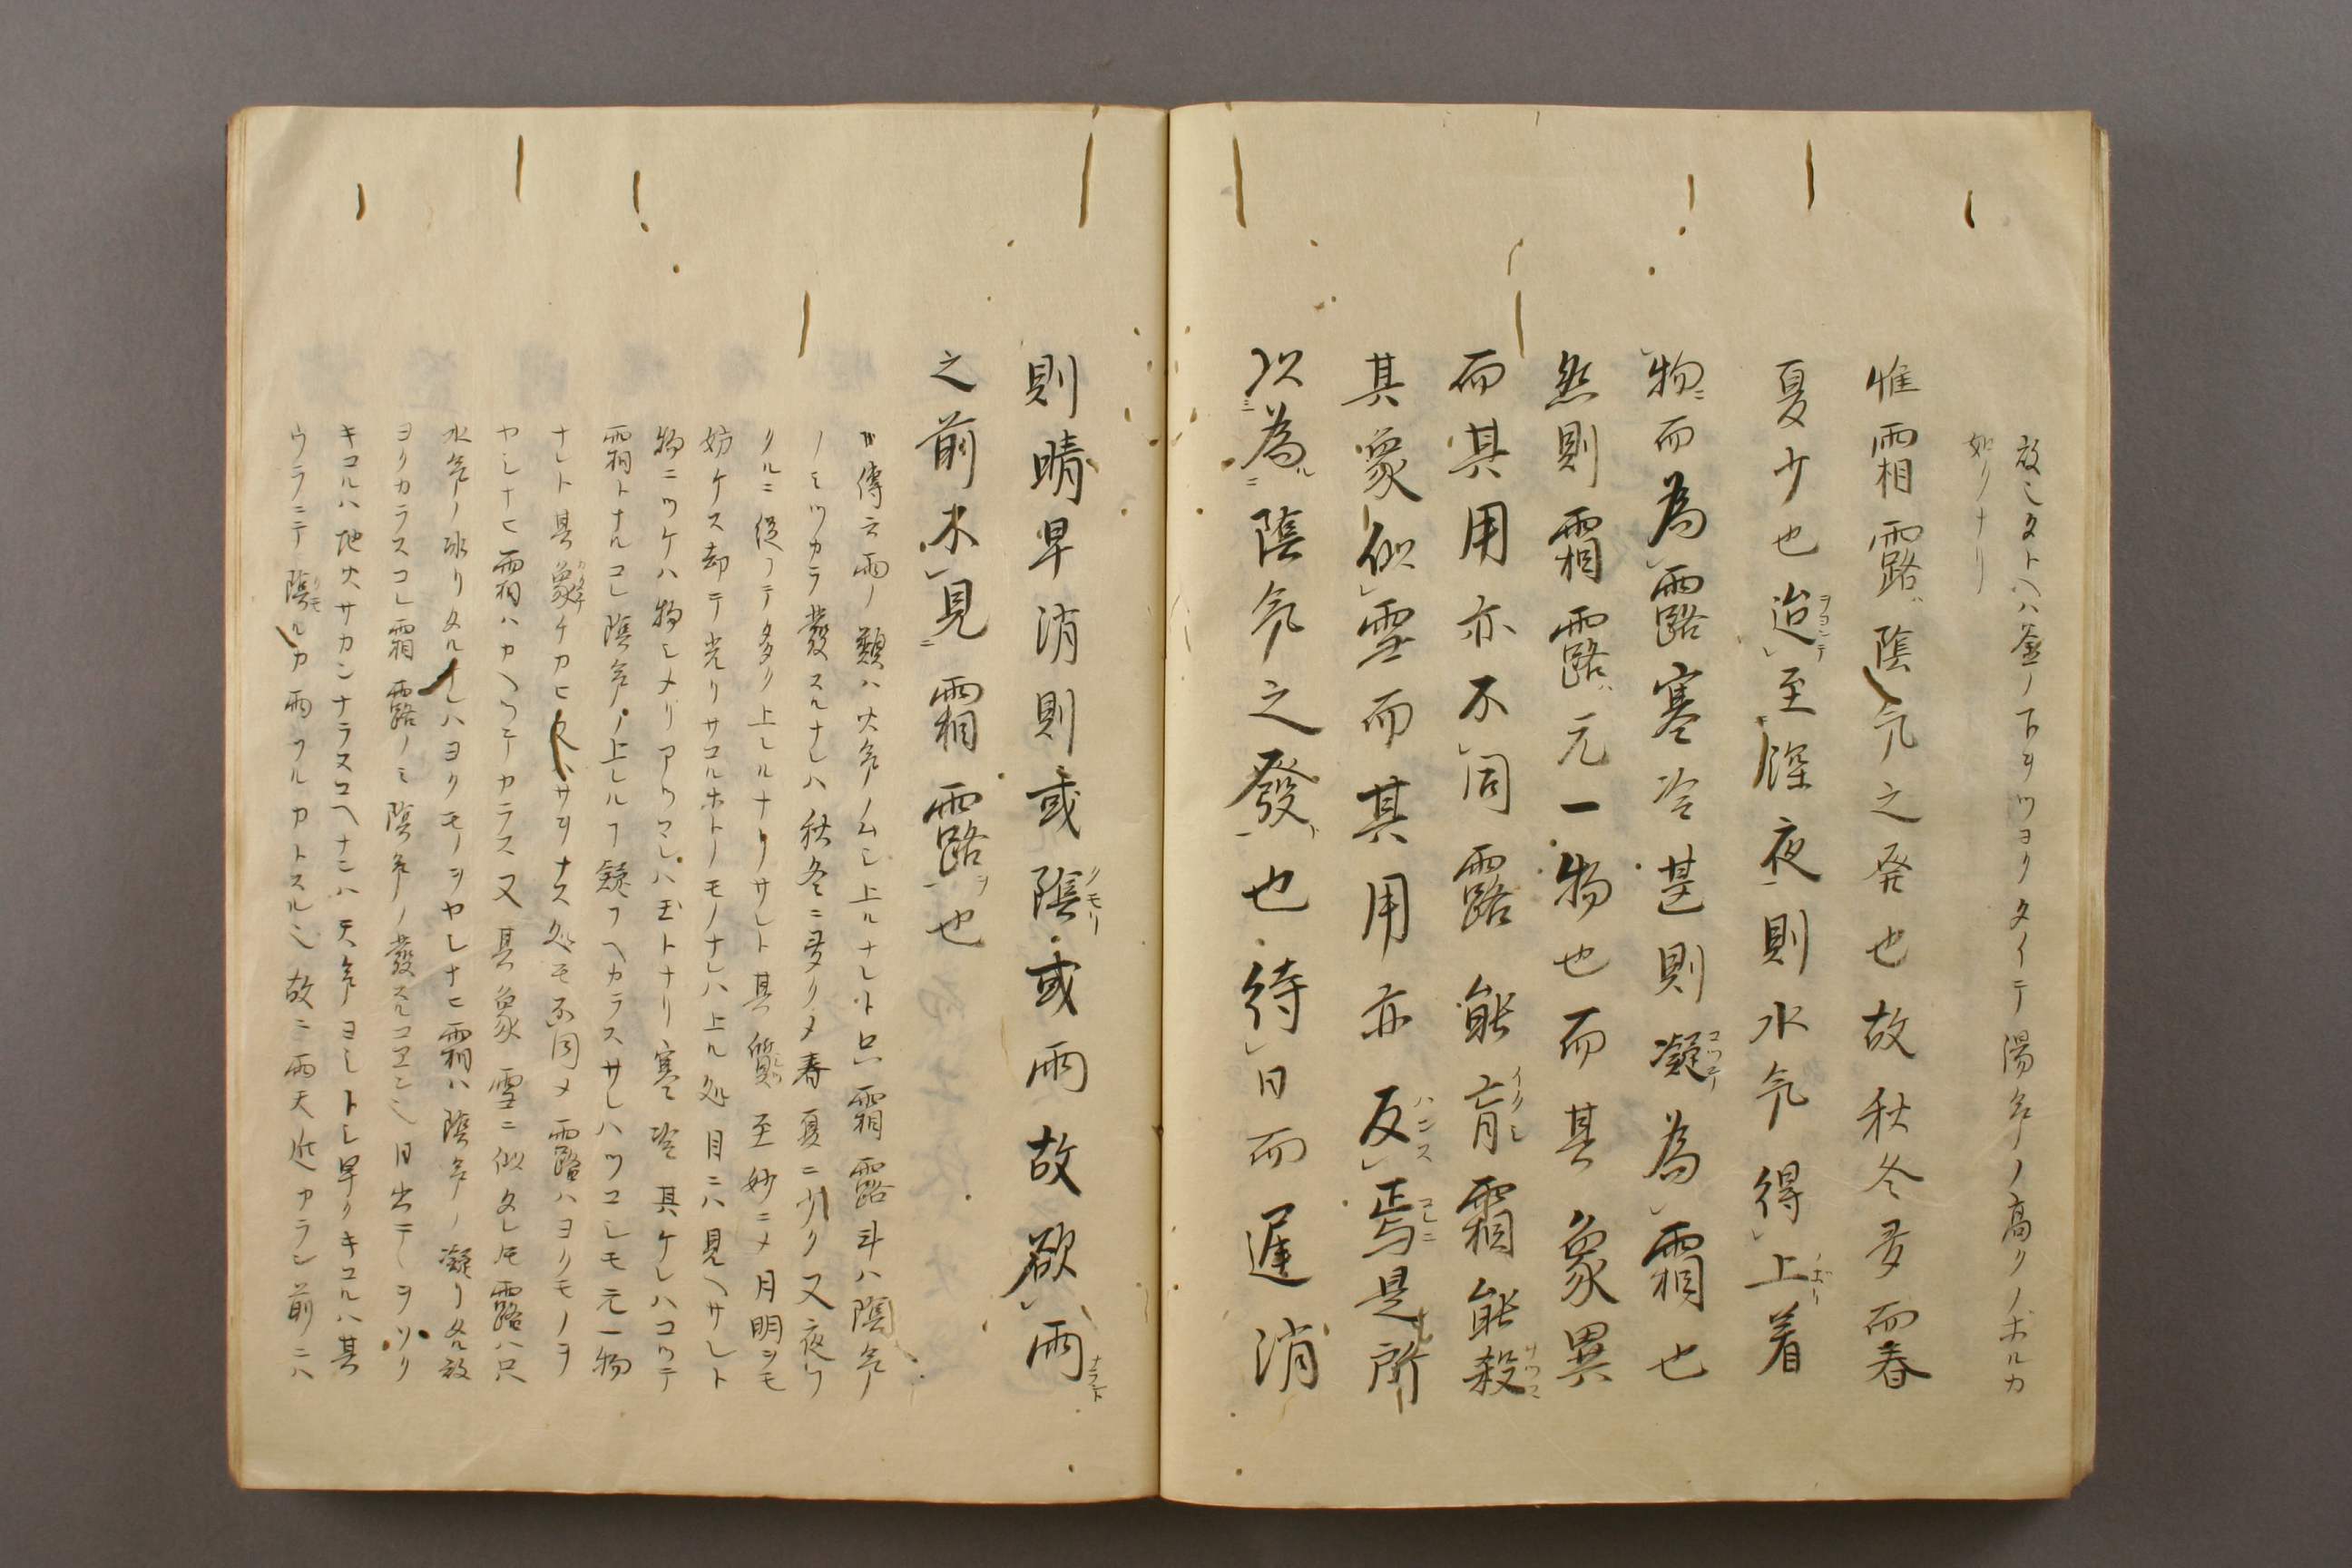 故也タトヘハ釜ノ下ヲツヨクタイテ湯气ノ高クノホルカ
如クナリ
惟霜露陰气之発也故秋冬多而春
夏少也迨至深夜則水气得上着
物而為露寒冷甚則凝為霜也
然則霜露元一物也而其象異
而其用亦不同露能育霜能殺
其象似雪而其用亦反焉是所
以為陰气之發也待日而遅消
則晴早消則或陰或雨故欲雨
之前不見霜露也
傳云雨ノ類ハ火气ノムシ上ルナレト只霜露斗ハ陰气
ノミツカラ發スルナレハ秋冬ニ多クメ春夏ニ少ク又夜フ
クルニ従フテ多ク上レルナリサレト其質至妙ニメ月明ヲモ
妨ケス却テ光リサコルホトノモノナレハ上ル処目ニハ見ヘサレト
物ニツケハ物シメリアツマレハ玉トナリ寒冷其ケレハコツテ
霜トナルコレ陰气ノ上レルフ疑フヘカラスサレハツコレモ元一物
ナレト其象ケカヒサヲナス処モ不同メ露ハヨクモノヲ
ヤシナヒ霜ハカヘツテカラス又其象雪ニ似タレ𪜈露ハ只
水气ノ氷リタルレハヨクモノヲヤシナヒ霜ハ陰气ノ凝リタル故
ヨクカラスコレ霜露ノミ陰气ノ發スルコエン也日出テヲソク
キコルハ地火サカンナラスコヘナニハ天气ヨシトシ早クキコルハ其
ウラニテ陰ルカ雨フルカトスル也故ニ雨天近カラン前ニハ